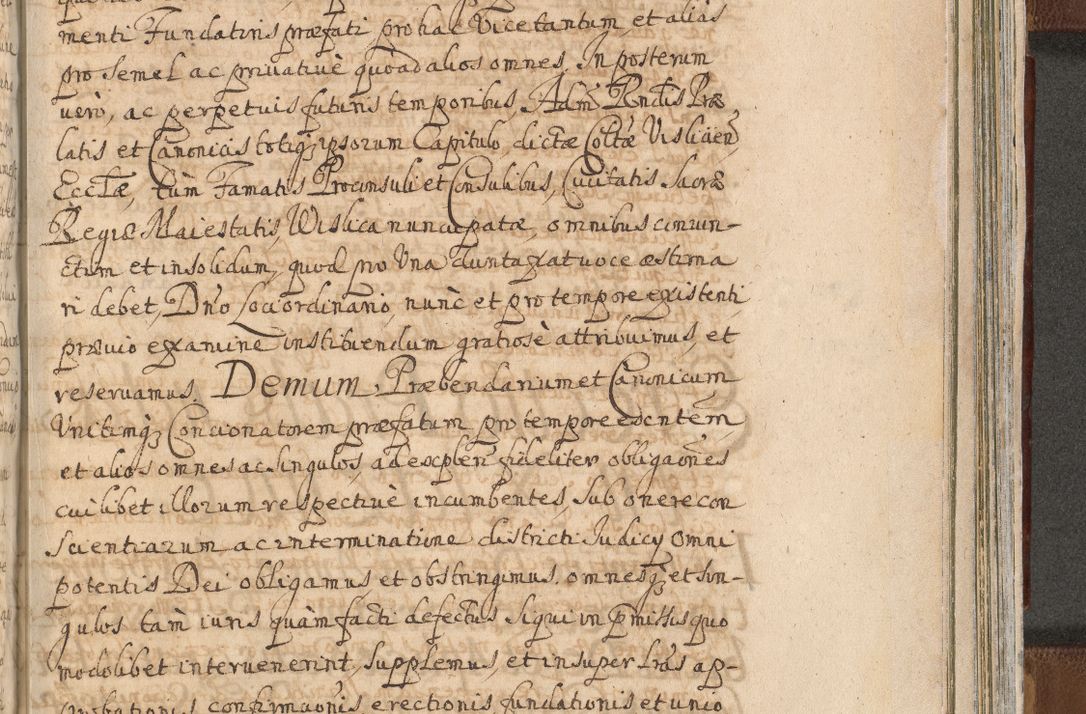 menti Fundatiris præfati pro hac Vice tantum, et alias
pro Semel ac privativè quòad alios omnes, In posterum
verò, ac perpetuis futuris temporibus, Adm̃ Rndis Præ
latis et Canonicis totiq₃ ipsorum Capitulo, dictæ Coltæ Visliciēn,
Eccłæ, tum Famatis Proconsuli et Consulibus, Civitatis Sacræ
Regiæ Maiestatis, Wislica nuncupatæ, omnibus coniun-
ctim et insolidum, quod pro Una duntaxat voce æstima
ri debet, Dño loci ordinario, nunc et pro tempore existenti
prævio examine instituendum gratiosè attribuimus, et
reservamus. Demum, Præbendarium et Canonicum
Unitimq₃ Concionatorem præfatum pro tempore exñtem
et alios omnes ac singulos, ad explen fideliter obligaōnes
cuilibet illorum respectivè incumbentes, Sub onere con
scientiarum ac interminatione districti Iudicÿ Omni
potentis Dei obligamus, et obstringimus, omnesq₃ et sin-
gulos tam iuris quàm facti defectus Siqui in p̃missis quo
modolibet intervenerint, supplemus, et insuper Lrãs ap-
probationis confirmaōnis erectionis fundationis et unio